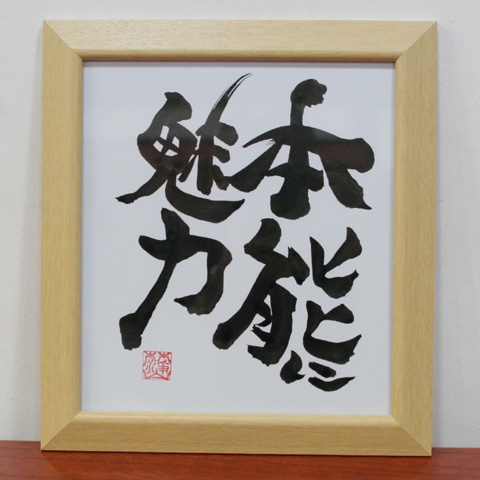 本能に
魅力